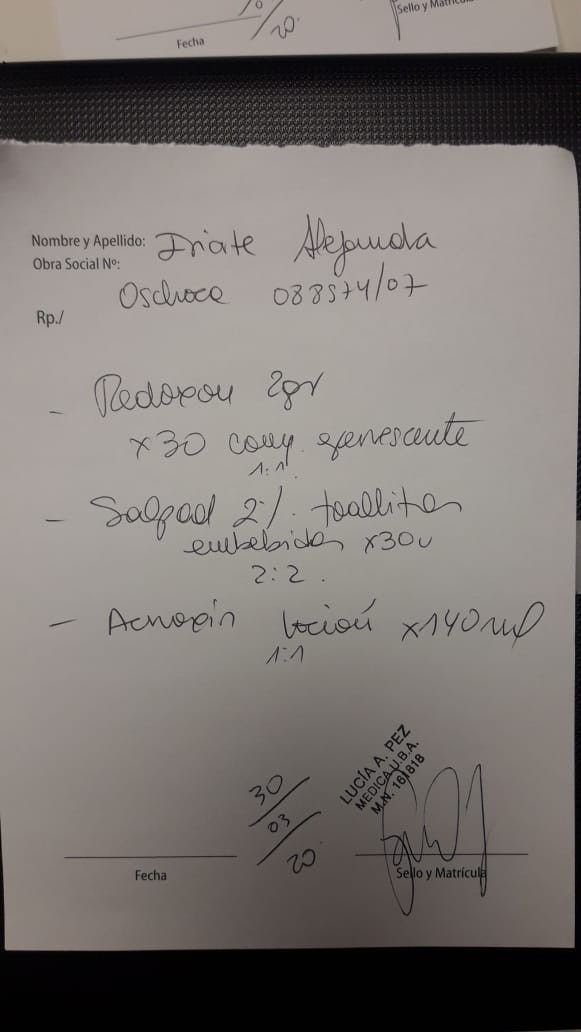 Fecha
20
Sello y Matrícula
Nombre y Apellido: Iriate Alejandra
Obra Social Nº:
Oschoca 088574/07
Rp./
- Redoxon 2gr
x30 comp. efervescente
1:1
- Salpad 2% toallitas
embebidas x30u
2:2.
- Acnoxin loción x140ml
1:1
30/03/20
LUCÍA A. PEZ
MEDICA U.B.A.
M.N. 161818
Fecha
Sello y Matrícula